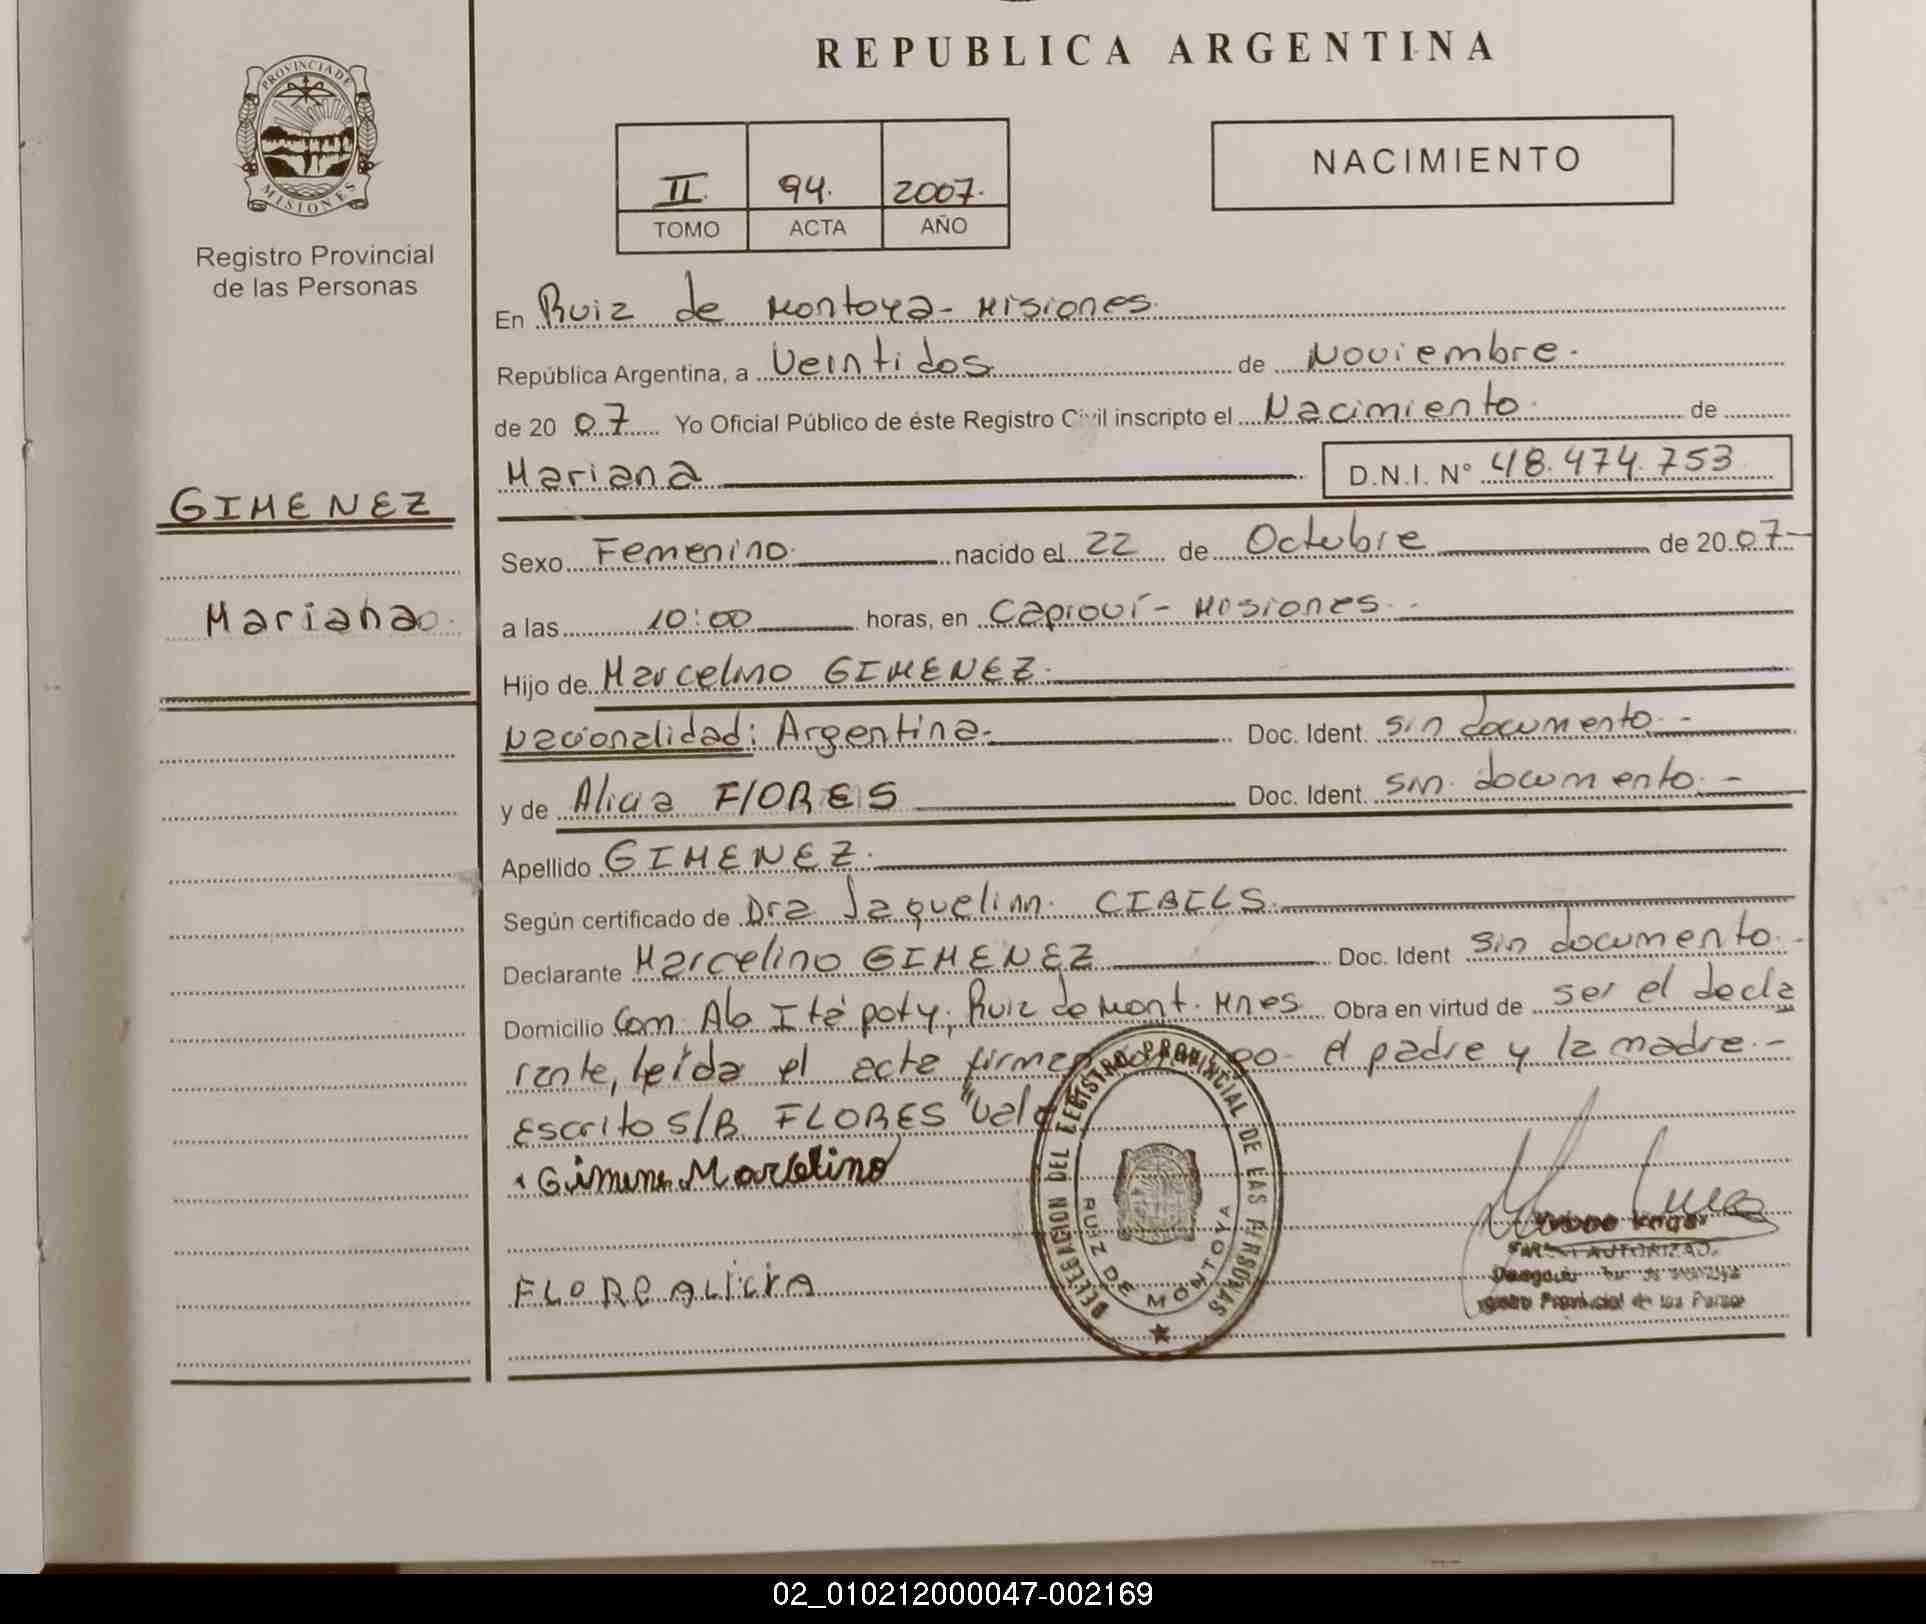 REPUBLICA ARGENTINA
PROVINCIA DE
MISIONES
Registro Provincial
de las Personas
II. 94. 2007.
TOMO ACTA AÑO
NACIMIENTO
En Ruiz de Montoya - Misiones.
República Argentina, a Veintidos de Noviembre.-
de 20 07 Yo Oficial Público de éste Registro Civil inscripto el Nacimiento. de
Mariana D.N.I. N° 48.474.753
GIMENEZ
Mariana
Sexo Femenino. nacido el 22 de Octubre de 20 07-
a las 10:00 horas, en Capioví - Misiones.-
Hijo de Marcelino GIMENEZ.
Nacionalidad: Argentina.- Doc. Ident. sin documento.-
y de Alicia FlORES Doc. Ident. sin documento.-
Apellido GIMENEZ.
Según certificado de Dra Jaquelinn. CIBELS.
Declarante Marcelino GIMENEZ Doc. Ident sin documento.-
Domicilio Com. Ab Ité poty, Ruiz de Mont. Mnes Obra en virtud de ser el decla
rante, leída el acta el padre y la madre.-
Escrito s/B FLORES "Vale
Gimene Marcelino
FLORE ALICIA
DELEGACION DEL REGISTRO PROVINCIAL DE LAS PERSONAS
RUIZ DE MONTOYA
AUTORIZAD.
Provincial de las Person
02_010212000047-002169